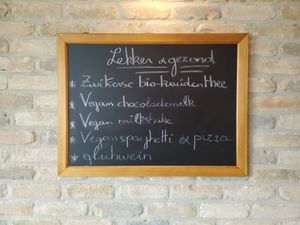 Lekker & gezond
* Zwitserse bio-kruidenthee
* Vegan chocolademelk
* Vegan milkshake
* Vegan spaghetti & pizza
* glühwein